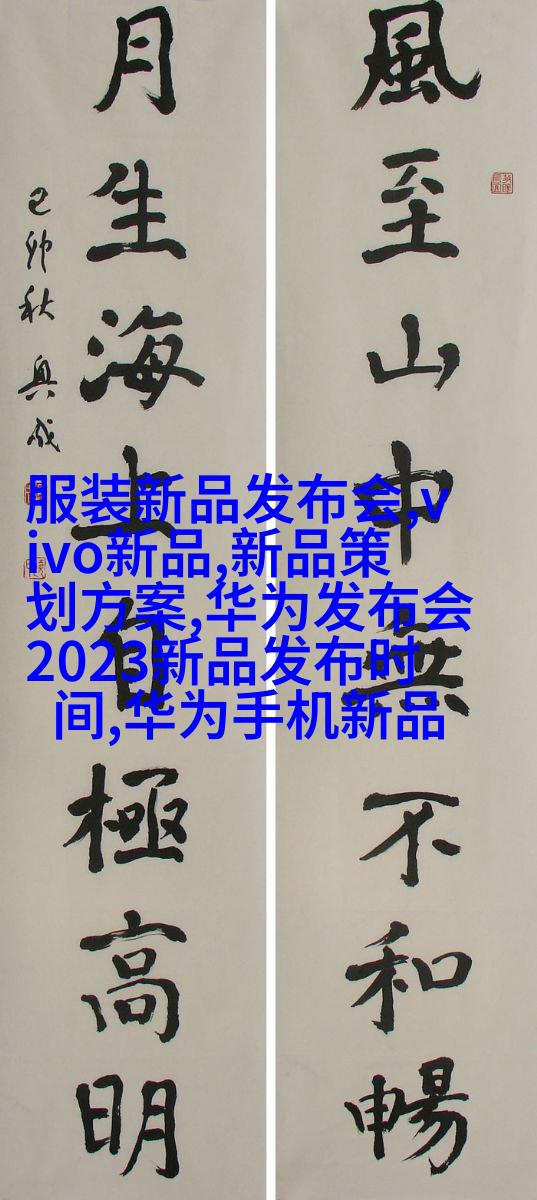 風至山中無不和暢
月生海上自極高明
己卯秋
服装新品发布会,v
ivo新品,新品策
划方案,华为发布会
2023新品发布时
间,华为手机新品